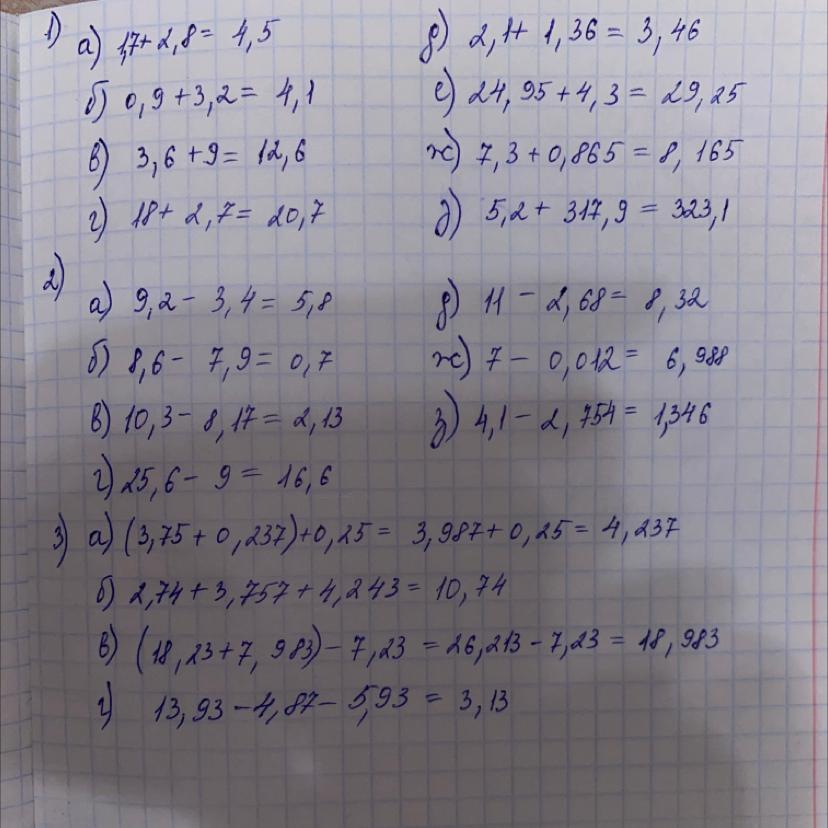 1) а) 1,7+2,8= 4,5
б) 0,9+3,2= 4,1
в) 3,6+9= 12,6
г) 18+ 2,7= 20,7
д) 2,1+ 1,36 = 3,46
е) 24,95+4,3 = 29,25
ж) 7,3+0,865 = 8,165
д) 5,2+ 317,9 = 323,1
2) а) 9,2- 3,4= 5,8
б) 8,6- 7,9= 0,7
в) 10,3- 8,17= 2,13
г) 25,6- 9 = 16,6
д) 11 - 2,68= 8,32
ж) 7 - 0,012= 6,988
з) 4,1- 2,754= 1,346
3) а) (3,75+ 0,237)+0,25 = 3,987+ 0,25= 4,237
б) 2,74+3,757+4,243= 10,74
в) (18,23+7,983)- 7,23 =26,213-7,23 = 18,983
г) 13,93-4,87- 5,93 = 3,13